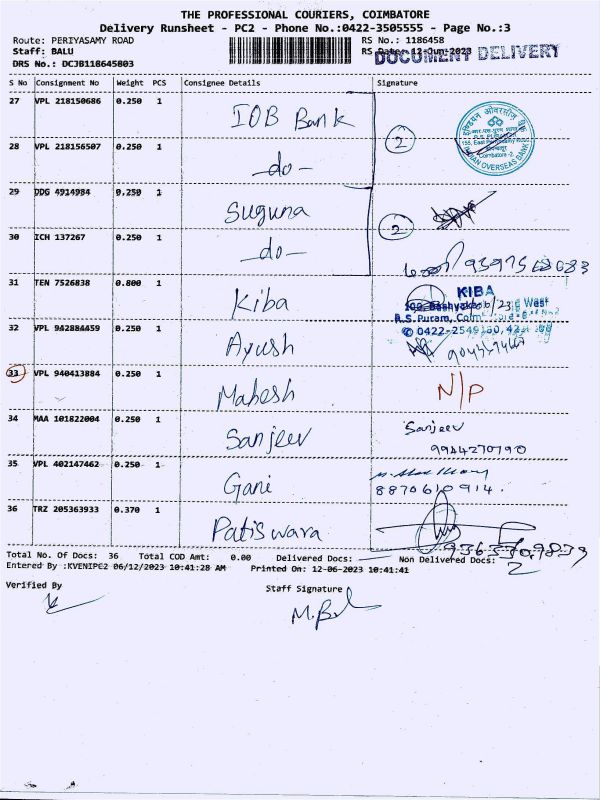 THE PROFESSIONAL COURIERS, COIMBATORE
Delivery Runsheet - PC2 - Phone No.:0422-3505555 - Page No.:3
Route: PERIYASAMY ROAD
RS No.: 1186458
Staff: BALU
RS Date: 12-Jun-2023
DOCUMENT DELIVERY
DRS No.: DCJB118645803
S No Consignment No Weight PCS Consignee Details Signature
27 VPL 218150686 0.250 1 IOB Bank
28 VPL 218156507 0.250 1 -do- 2
29 DDG 4914984 0.250 1 Suguna
30 ICH 137267 0.250 1 -do- 2
31 TEN 7526838 0.800 1 Kiba
KIBA
32 VPL 942884459 0.250 1 Ayush
33 VPL 940413884 0.250 1 Mahesh N/P
34 MAA 101822004 0.250 1 Sanjeev Sanjeev
9944270190
35 VPL 402147462 0.250 1 Gani
8870610914.
36 TRZ 205363933 0.370 1 Patiswara
Total No. Of Docs: 36 Total COD Amt: 0.00 Delivered Docs: Non Delivered Docs: 2
Entered By :KVENIPC2 06/12/2023 10:41:28 AM Printed On: 12-06-2023 10:41:41
Verified By
Staff Signature
M.Bal